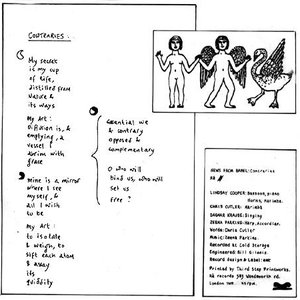 CONTRARIES:
My secret
is my cup
of life,
distilled from
nature &
its ways
My art:
Diffusion is, &
emptying, a
vessel
abrim with
grace
mine is a mirror
where I see
myself, &
all I wish
to be
My art:
to isolate
& weigh, to
sift each atom
& assay
its
quiddity
Essential we
& contrary
opposed &
complementary
O who will
bind us, who will
set us
free?
NEWS FROM BABEL: Contraries
LINDSAY COOPER: Bassoon, piano
CHRIS CUTLER:
DAGMAR KRAUSE: Singing
ZEENA PARKINS: Harp, Accordion.
Words: Chris Cutler
Music: Zeena Parkins.
Recorded at Cold Storage
Engineered: Bill Gilonis.
Record Design & Label:
Printed by Third Step Printworks.
Rē records 583 Wandsworth rd.
London SW8.